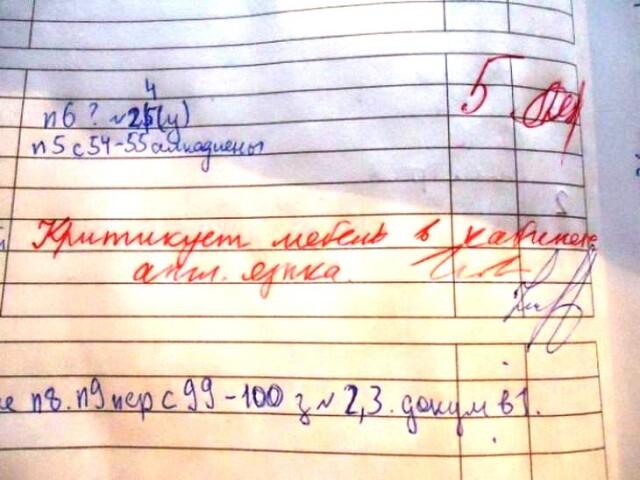 п6 ? №25(у) 4 5
п5 с54-55 алкадиены
Критикует мебель в кабинете
англ. языка.
п8. п9 пер с 99-100 з № 2,3. докум в 1.